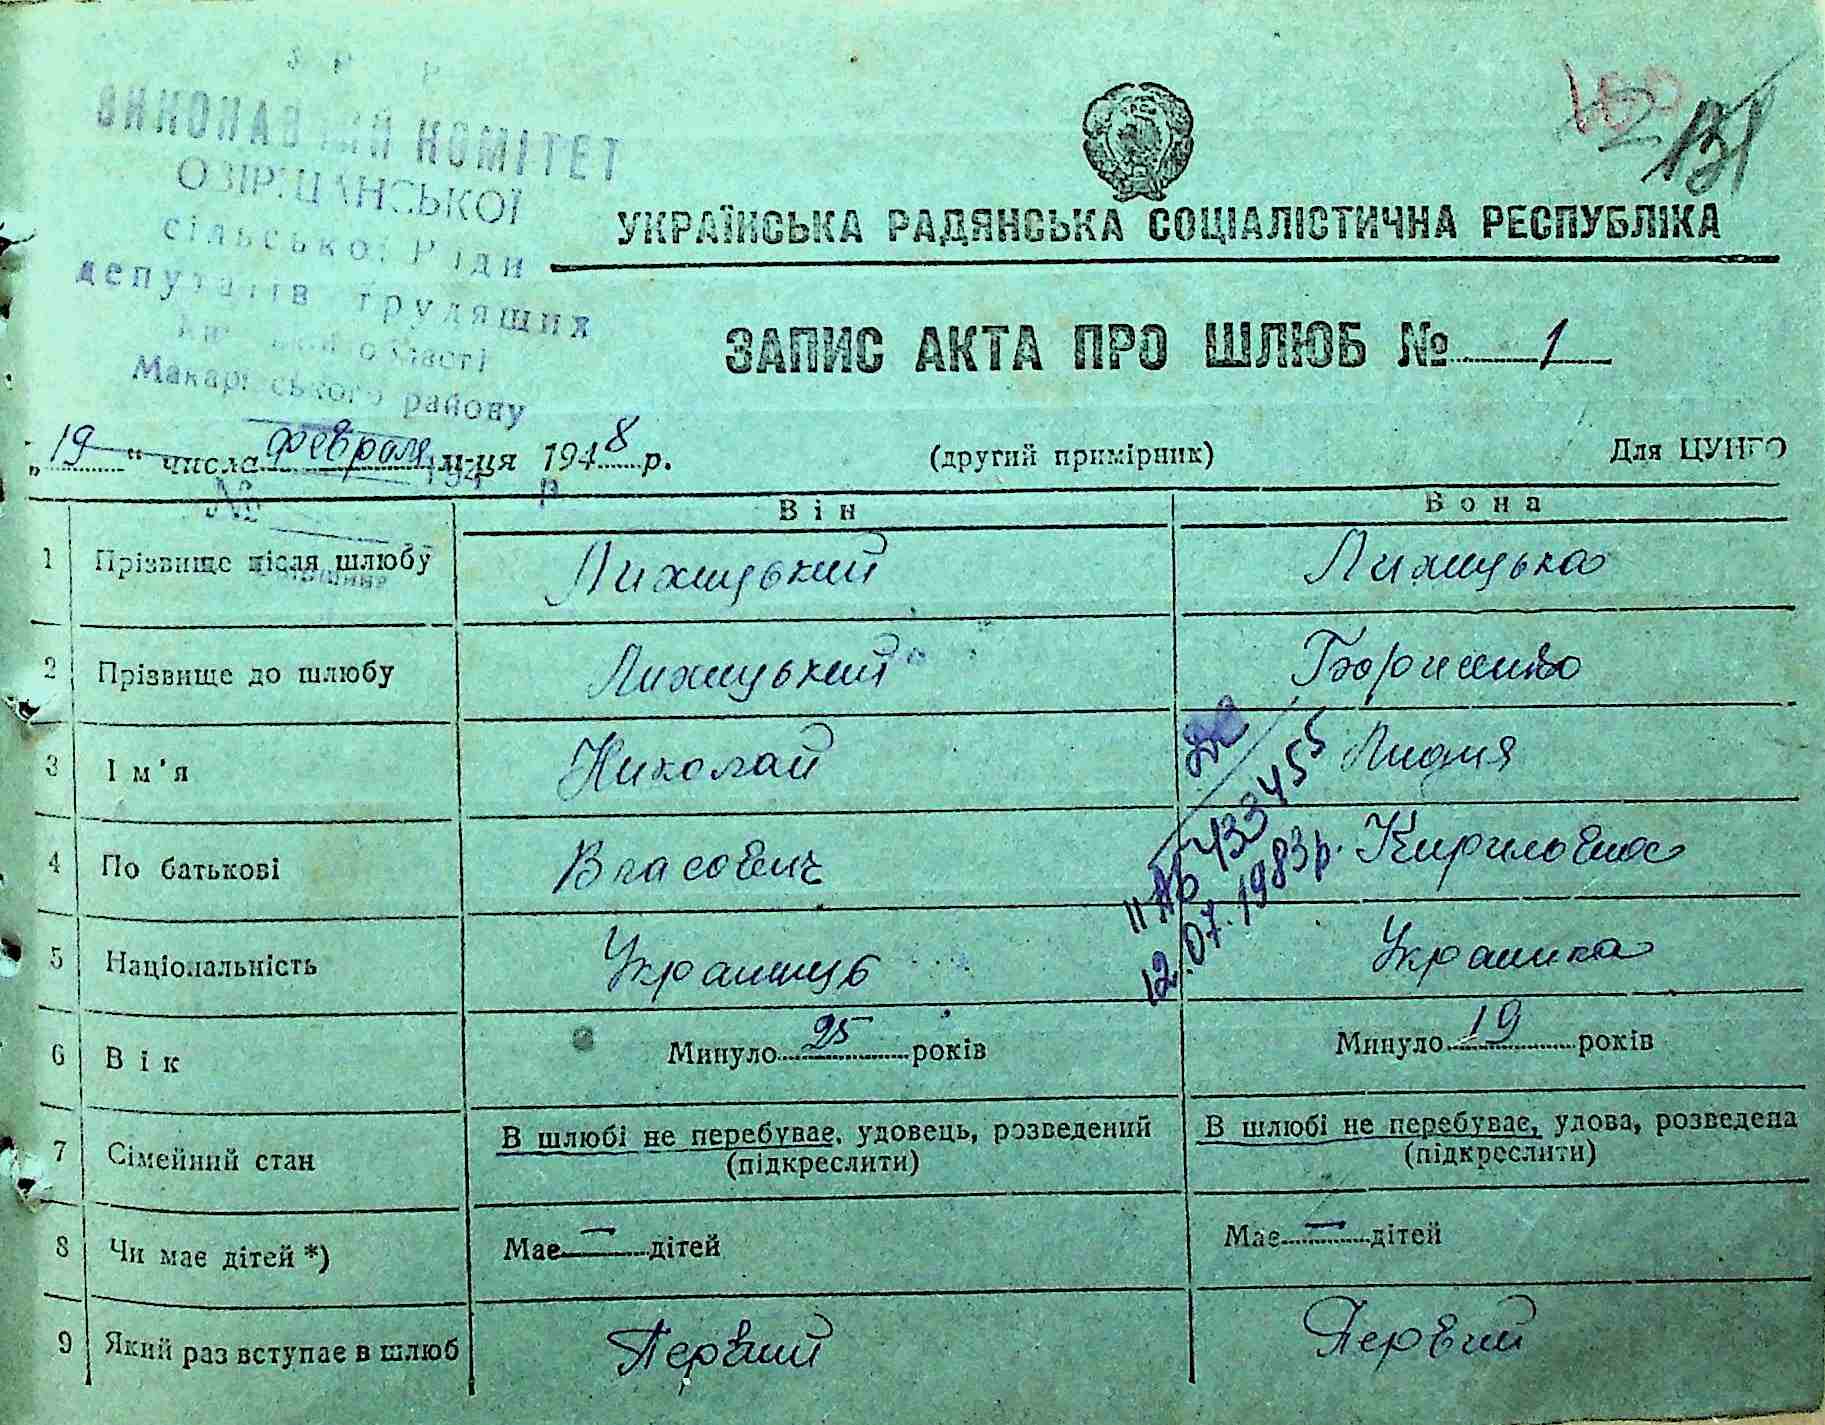 ВИКОНАВЧИЙ КОМІТЕТ
ОЗІРЩАНСЬКОЇ
сільської Ради
депутатів трудящих
області
Макарівського району
131
УКРАЇНСЬКА РАДЯНСЬКА СОЦІАЛІСТИЧНА РЕСПУБЛІКА
ЗАПИС АКТА ПРО ШЛЮБ № 1
„19“ числа февраля м-ця 1948 р.
(другий примірник)
Для ЦУНГО
№
Він Вона
1 Прізвище після шлюбу Лихицький Лихицька
2 Прізвище до шлюбу Лихицький
3 Ім'я Николай Лидия
4 По батькові Власович Кириловна
5 Національність Украинць Украинка
ІІ АБ 433455
12.07.1983р.
6 Вік Минуло 25 років Минуло 19 років
7 Сімейний стан В шлюбі не перебуває, удовець, розведений (підкреслити) В шлюбі не перебуває, удова, розведена (підкреслити)
8 Чи має дітей *) Має — дітей Має — дітей
9 Який раз вступає в шлюб Первий Первий